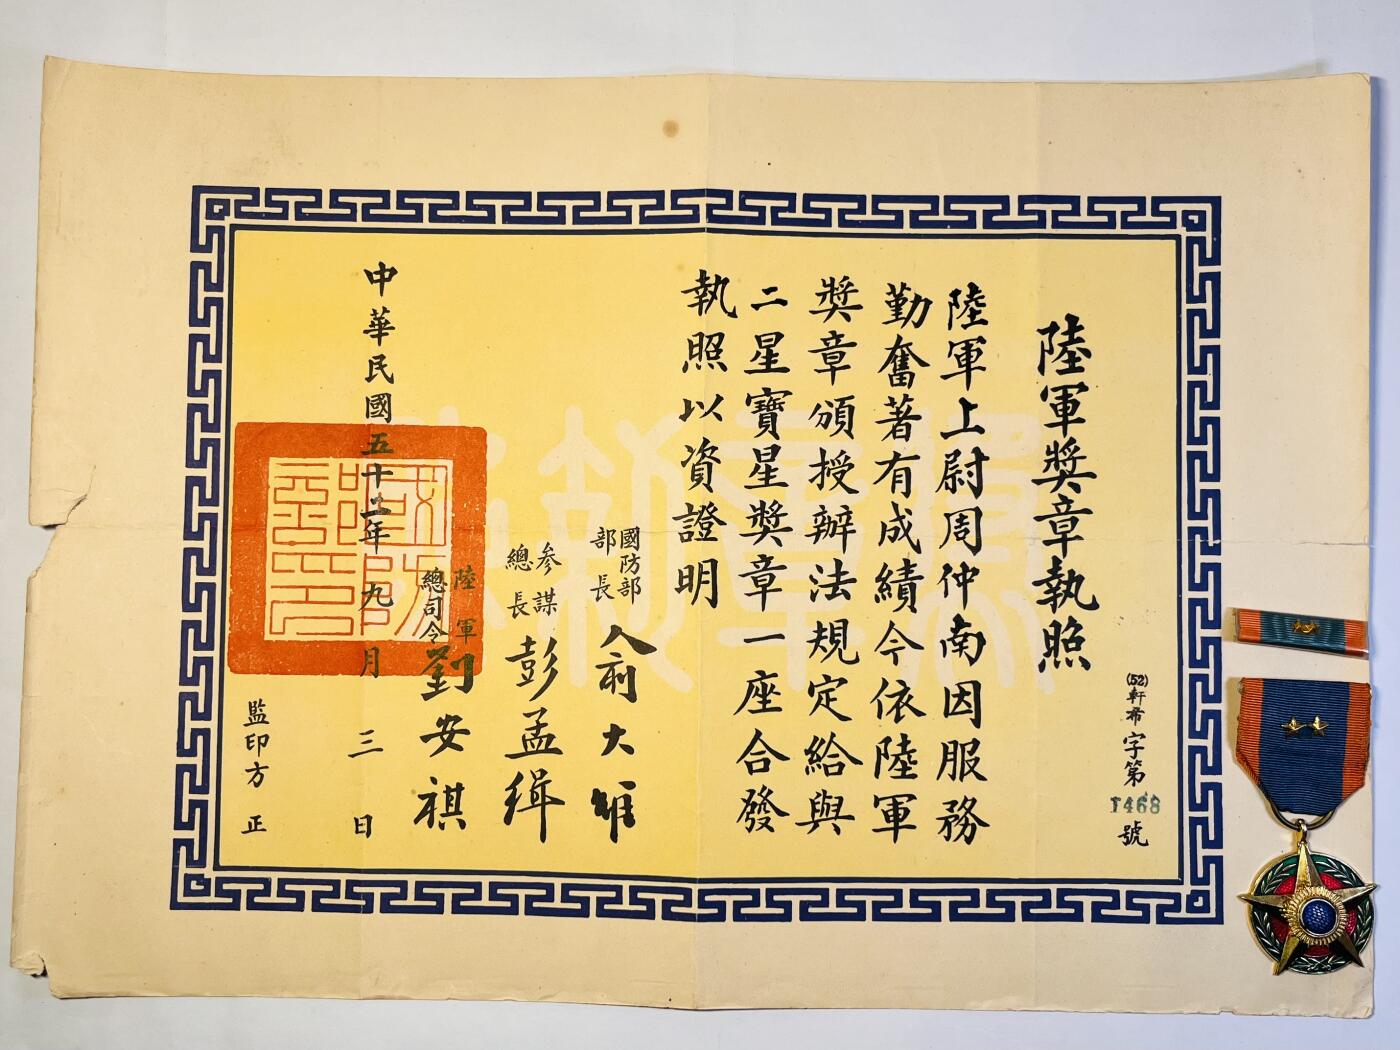 (52)軒希字第1468號
陸軍獎章執照
陸軍上尉周仲南因服務
勤奮著有成績今依陸軍
獎章頒授辦法規定給與
二星寶星獎章一座合發
執照以資證明
國防部部長俞大維
參謀總長彭孟緝
陸軍總司令劉安祺
中華民國五十二年九月三日
監印方正